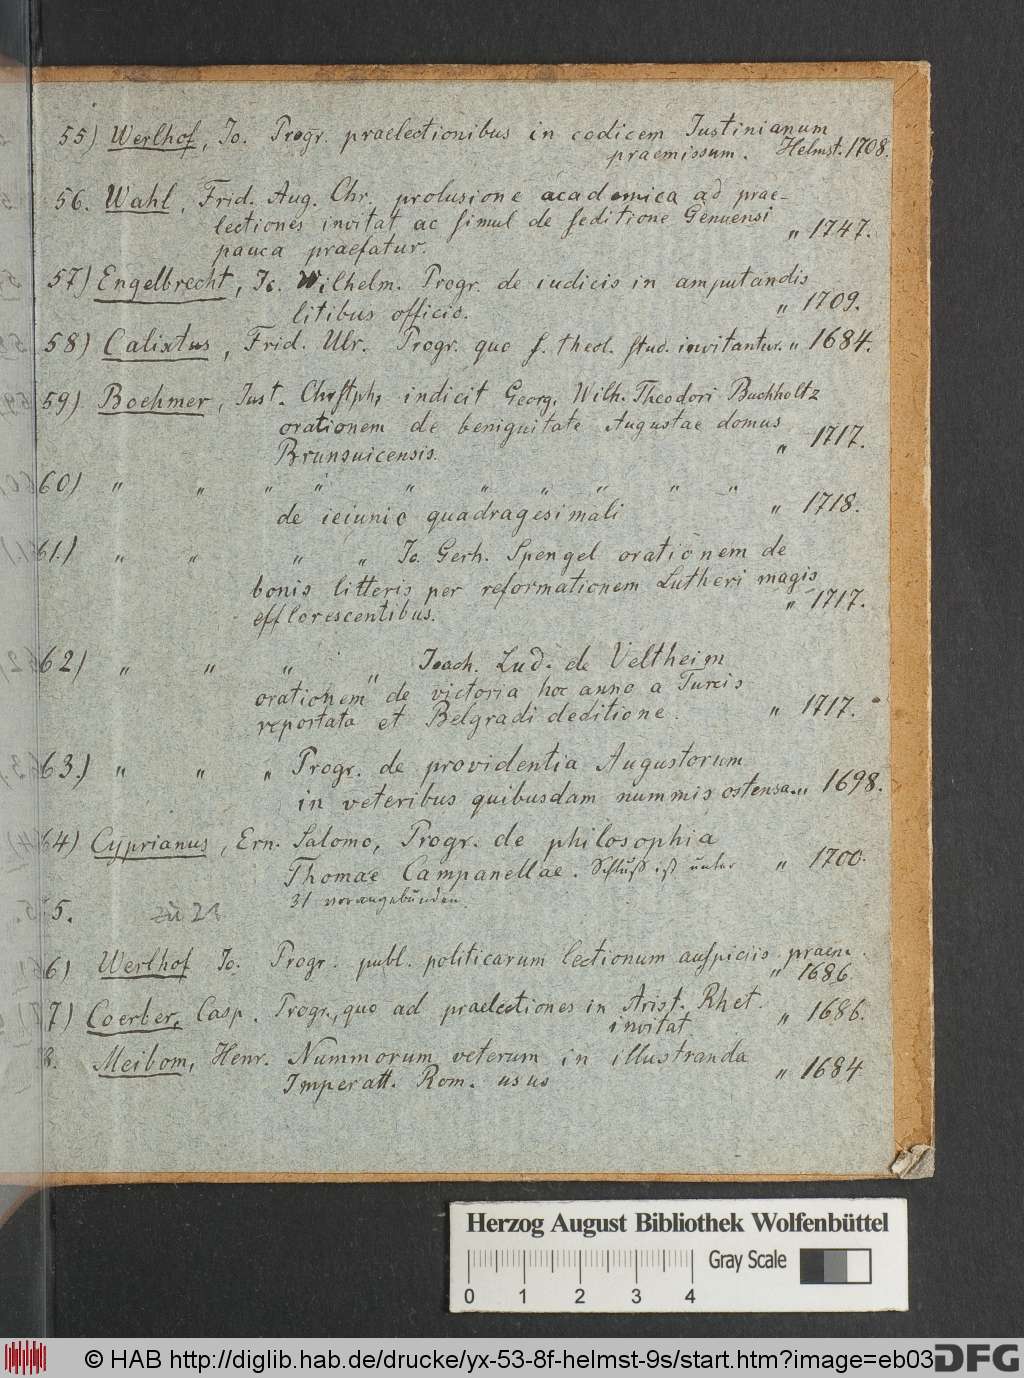 55) Werlhof, Jo. Progr. praelectionibus in codicem Justinianum
praemissum. Helmst. 1708.
56. Wahl, Frid. Aug. Chr. prolusione academica ad prae-
lectiones invitat ac simul de seditione Genuensi
pauca praefatur. " 1747.
57) Engelbrecht, Jo. Wilhelm. Progr. de iudicis in amputandis
litibus officio. " 1709.
58) Calixtus, Frid. Ulr. Progr. quo s. theol. stud. invitantur. " 1684.
59) Boehmer, Just. Christph, indicit Georg. Wilh. Theodori Buchholtz
orationem de benignitate Augustae domus
Brunsuicensis. " 1717.
60) " " " " " " " " " "
de ieiunio quadragesimali " 1718.
61.) " " " " Jo. Gerh. Spengel orationem de
bonis litteris per reformationem Lutheri magis
efflorescentibus. " 1717.
62) " " " " Joach. Lud. de Veltheim
orationem de victoria hoc anno a Turcis
reportata et Belgradi deditione. " 1717.
63.) " " " Progr. de providentia Augustorum
in veteribus quibusdam nummis ostensa. " 1698.
64) Cyprianus, Ern. Salomo, Progr. de philosophia
Thomae Campanellae. Schluß ist unter " 1700.
31 vorangebunden.
5. zu 23
6) Werlhof Jo. Progr. publ. politicarum lectionum auspiciis praem.
" 1686.
7) Coerber, Casp. Progr., quo ad praelectiones in Arist. Rhet.
invitat " 1686.
8. Meibom, Henr. Nummorum veterum in illustranda
Imperatt. Rom. usus " 1684
Herzog August Bibliothek Wolfenbüttel
Gray Scale
0 1 2 3 4
© HAB http://diglib.hab.de/drucke/yx-53-8f-helmst-9s/start.htm?image=eb03
DFG